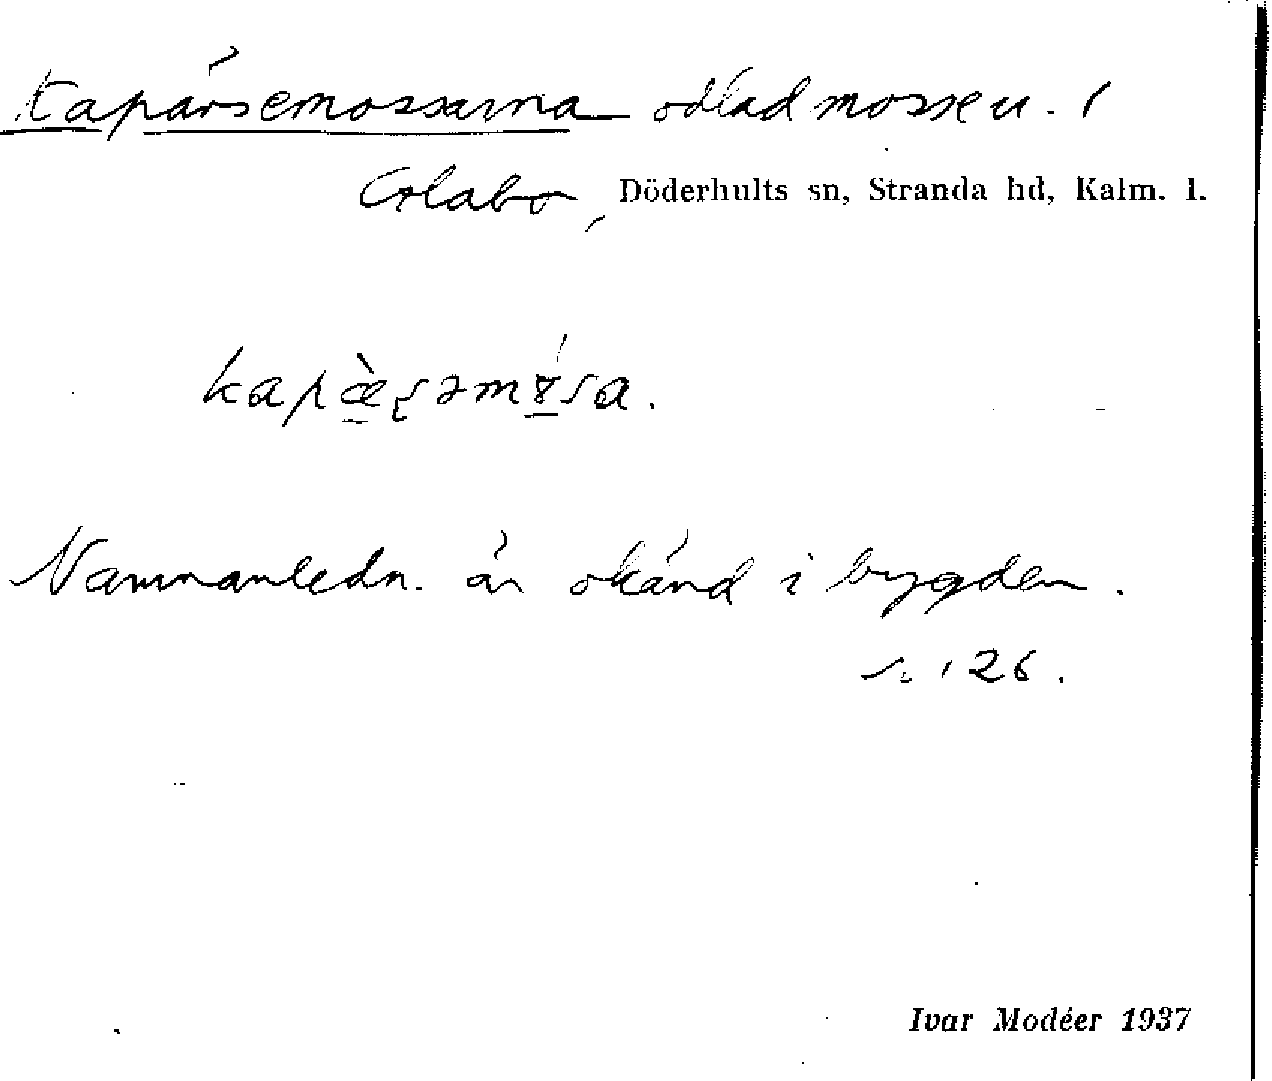 Kapärsemossarna odlad mosse u.
Döderhults sn, Stranda hd, Kalm. l.
Namnanledn. är okänd i bygden.
s. 126.
Ivar Modéer 1937